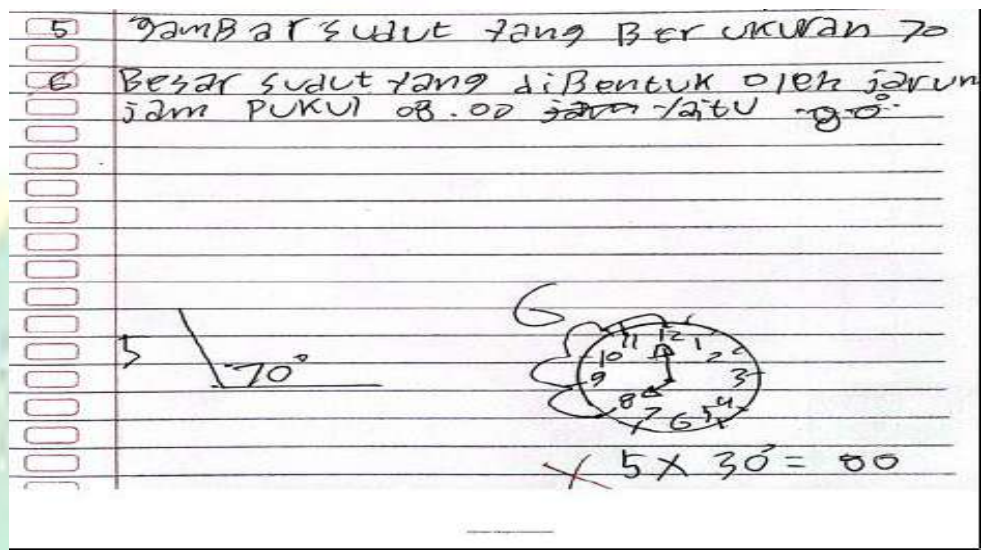 5 gamBar sudut yang Ber ukuran 70
6 Besar sudut yang diBentuk oleh jarum
jam PUKUl 08.00 yaitu
5 70°
6
12
11 1
10 2
9 3
8 4
7 6 5
5 X 30° = 80